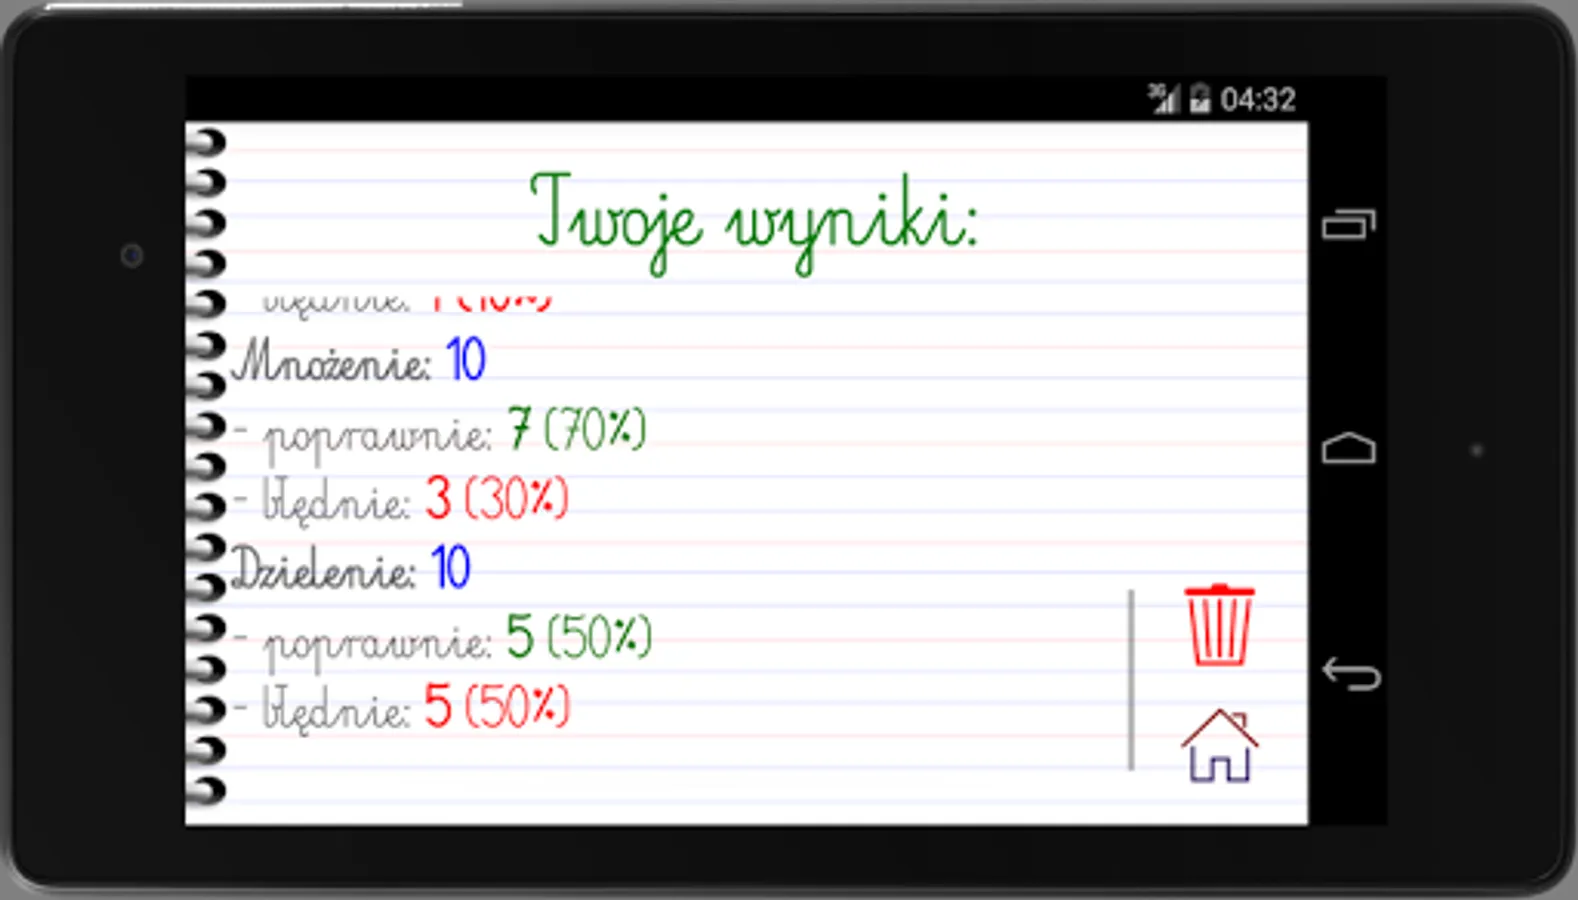 3G 04:32
Twoje wyniki:
błędnie: 1 (10%)
Mnożenie: 10
- poprawnie: 7 (70%)
- błędnie: 3 (30%)
Dzielenie: 10
- poprawnie: 5 (50%)
- błędnie: 5 (50%)